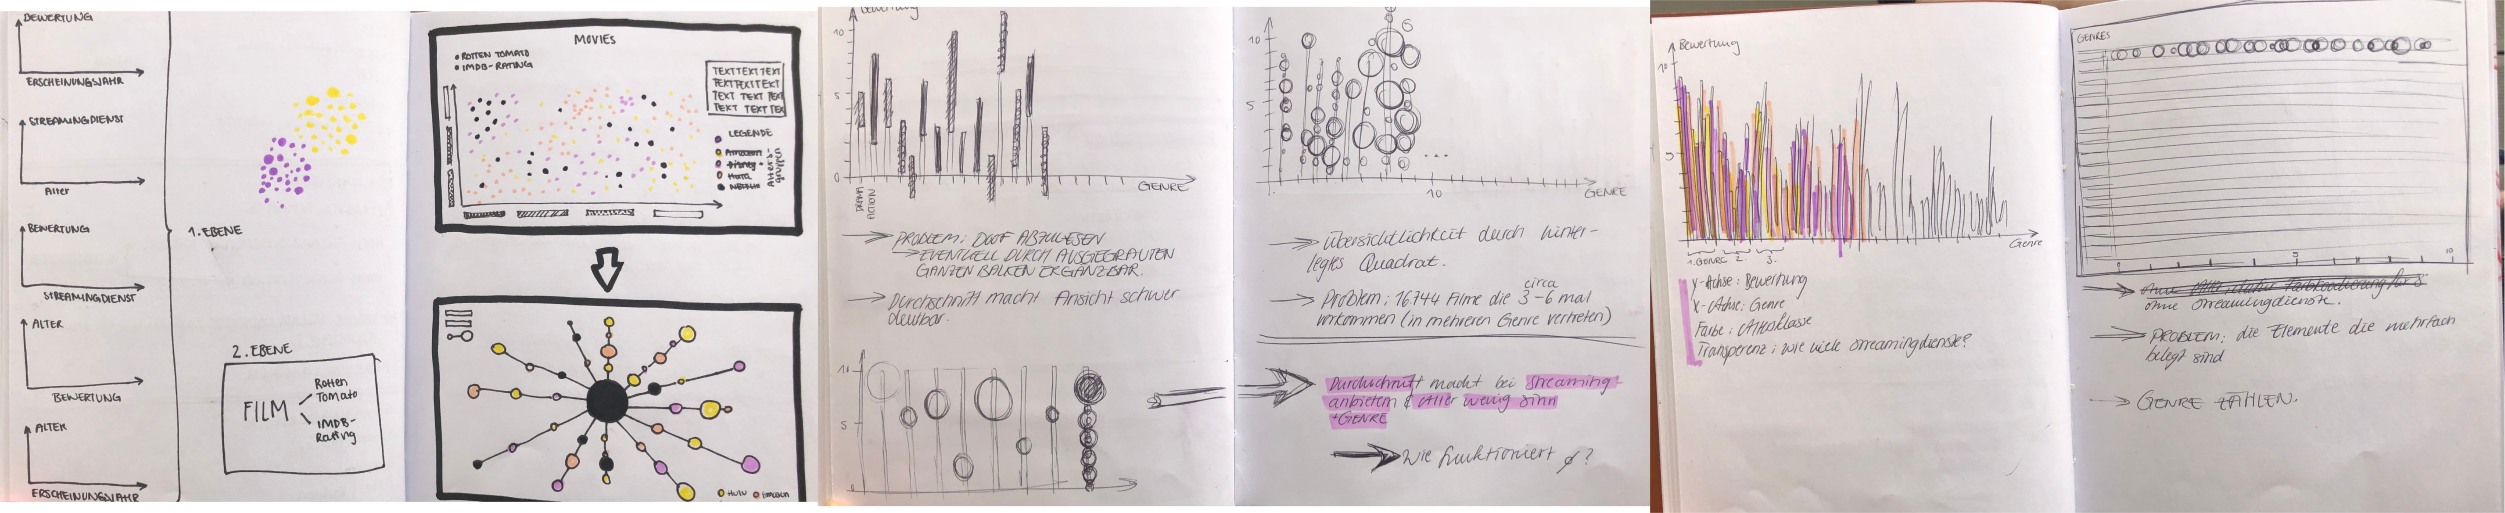 BEWERTUNG
ERSCHEINUNGSJAHR
STREAMINGDIENST
Alter
BEWERTUNG
STREAMINGDIENST
ALTER
BEWERTUNG
ALTER
ERSCHEINUNGSJAHR
1. EBENE
2. EBENE
FILM
Rotten
Tomato
IMDB-
Rating
MOVIES
• ROTTEN TOMATO
• IMDB-RATING
TEXT TEXT TEXT
TEXT TEXT TEXT
TEXT TEXT TEXT
TEXT TEXT TEXT
LEGENDE
Amazon
Disney+
Hulu
Netflix
Alters-
gruppe
Hulu
Amazon
Bewertung
10
5
0
GENRE
FICTION
→ PROBLEM: DOOF ABZULESEN
→ EVENTUELL DURCH AUSGEGRAUTEN
GANZEN BALKEN ERGÄNZBAR.
→ Durchschnitt macht Ansicht schwer
deutbar.
10
5
0
10
5
10
GENRE
→ Übersichtlichkeit durch hinter-
legtes Quadrat.
→ Problem: 16.744 Filme die circa 3-6 mal
vorkommen (in mehreren Genre vertreten)
Durchschnitt macht bei Streaming-
anbietern & Alter wenig Sinn
+GENRE
→ Wie funktioniert ∅?
Bewertung
10
5
Genre
1. GENRE 2. 3.
Y-Achse: Bewertung
X-Achse: Genre
Farbe: Altersklasse
Transparenz: wie viele Streamingdienste?
GENRES
5
10
ohne Streamingdienste.
→ PROBLEM: die Elemente die mehrfach
belegt sind
→ GENRE ZÄHLEN.